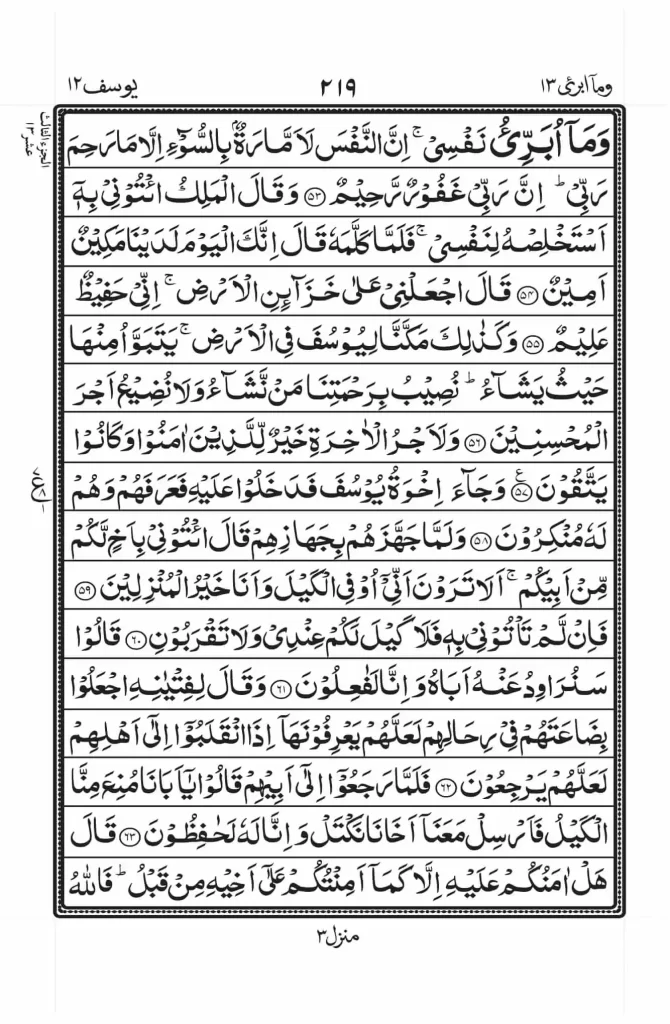 وما ابرئ ١٣
٢١٩
يوسف ١٢
الجزء الثالث عشر ١٣
وَمَاۤ اُبَرِّئُ نَفۡسِىۡ‌ۚ اِنَّ النَّفۡسَ لَاَمَّارَةٌۢ بِالسُّوۡٓءِ اِلَّا مَا رَحِمَ
رَبِّىۡ ؕ اِنَّ رَبِّىۡ غَفُوۡرٌ رَّحِيۡمٌ ۝٥٣ وَقَالَ الۡمَلِكُ ائۡتُوۡنِىۡ بِهٖۤ
اَسۡتَخۡلِصۡهُ لِنَفۡسِىۡ‌ۚ فَلَمَّا كَلَّمَهٗ قَالَ اِنَّكَ الۡيَوۡمَ لَدَيۡنَا مَكِيۡنٌ
اَمِيۡنٌ ۝٥٤ قَالَ اجۡعَلۡنِىۡ عَلٰى خَزَآٮِٕنِ الۡاَرۡضِ‌ۚ اِنِّىۡ حَفِيۡظٌ
عَلِيۡمٌ ۝٥٥ وَكَذٰلِكَ مَكَّنَّا لِيُوۡسُفَ فِى الۡاَرۡضِ‌ۚ يَتَبَوَّاُ مِنۡهَا
حَيۡثُ يَشَآءُ‌ ؕ نُصِيۡبُ بِرَحۡمَتِنَا مَنۡ نَّشَآءُ‌ وَلَا نُضِيۡعُ اَجۡرَ
الۡمُحۡسِنِيۡنَ ۝٥٦ وَلَاَجۡرُ الۡاٰخِرَةِ خَيۡرٌ لِّـلَّذِيۡنَ اٰمَنُوۡا وَكَانُوۡا
يَتَّقُوۡنَ ۝٥٧ وَجَآءَ اِخۡوَةُ يُوۡسُفَ فَدَخَلُوۡا عَلَيۡهِ فَعَرَفَهُمۡ وَهُمۡ
لَهٗ مُنۡكِرُوۡنَ ۝٥٨ وَلَمَّا جَهَّزَهُمۡ بِجَهَازِهِمۡ قَالَ ائۡتُوۡنِىۡ بِاَخٍ لَّكُمۡ
مِّنۡ اَبِيۡكُمۡ‌ۚ اَلَا تَرَوۡنَ اَنِّىۡۤ اُوۡفِى الۡكَيۡلَ وَاَنَا خَيۡرُ الۡمُنۡزِلِيۡنَ ۝٥٩
فَاِنۡ لَّمۡ تَاۡتُوۡنِىۡ بِهٖ فَلَا كَيۡلَ لَـكُمۡ عِنۡدِىۡ وَلَا تَقۡرَبُوۡنِ ۝٦٠ قَالُوۡا
سَنُرَاوِدُ عَنۡهُ اَبَاهُ وَاِنَّا لَفٰعِلُوۡنَ ۝٦١ وَقَالَ لِفِتۡيٰنِهِ اجۡعَلُوۡا
بِضَاعَتَهُمۡ فِىۡ رِحَالِهِمۡ لَعَلَّهُمۡ يَعۡرِفُوۡنَهَاۤ اِذَا انْقَلَبُوۡۤا اِلٰٓى اَهۡلِهِمۡ
لَعَلَّهُمۡ يَرۡجِعُوۡنَ ۝٦٢ فَلَمَّا رَجَعُوۡۤا اِلٰٓى اَبِيۡهِمۡ قَالُوۡا يٰۤاَبَانَا مُنِعَ مِنَّا
الۡكَيۡلُ فَاَرۡسِلۡ مَعَنَاۤ اَخَانَا نَكۡتَلۡ وَاِنَّا لَهٗ لَحٰفِظُوۡنَ ۝٦٣ قَالَ
هَلۡ اٰمَنُكُمۡ عَلَيۡهِ اِلَّا كَمَاۤ اَمِنۡتُكُمۡ عَلٰٓى اَخِيۡهِ مِنۡ قَبۡلُ‌ؕ فَاللّٰهُ
منزل ٣